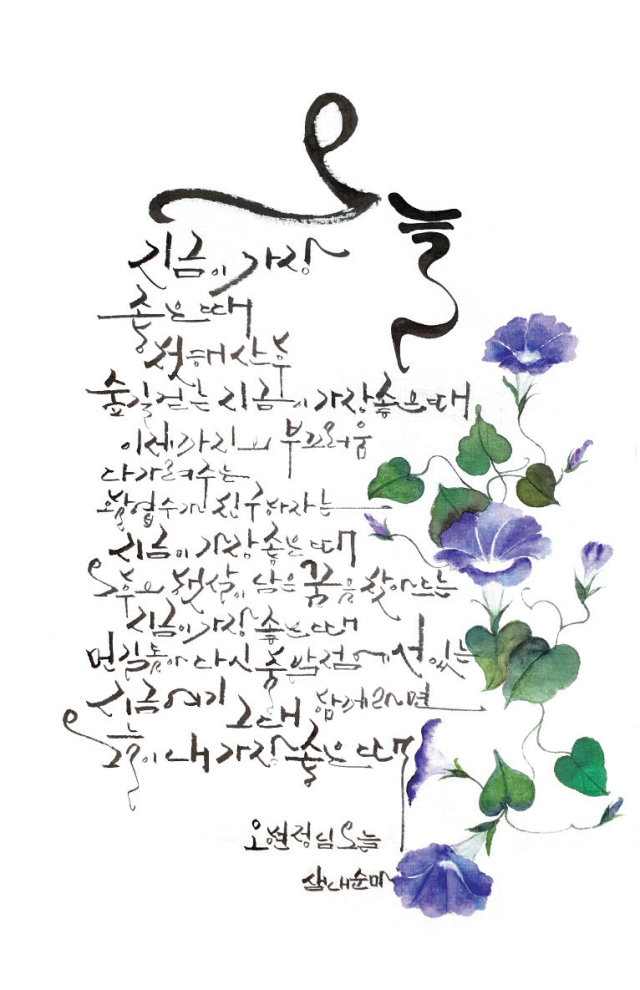 오늘
지금이 가장
좋은 때
첫 해 산 후
숲길 걷는 지금이 가장 좋은 때
이 세 가지의 부끄러움
다가려주는
왈엽수가 친구하자는
지금이 가장 좋은 때
오후의 햇살이 남은 꿈을 찾아 드는
지금이 가장 좋은 때
먼길 돌아 다시 출발점에 서 있는
지금 여기 그대 함께라면
오늘이 내 가장 좋은 때
오현정님 오늘
순미